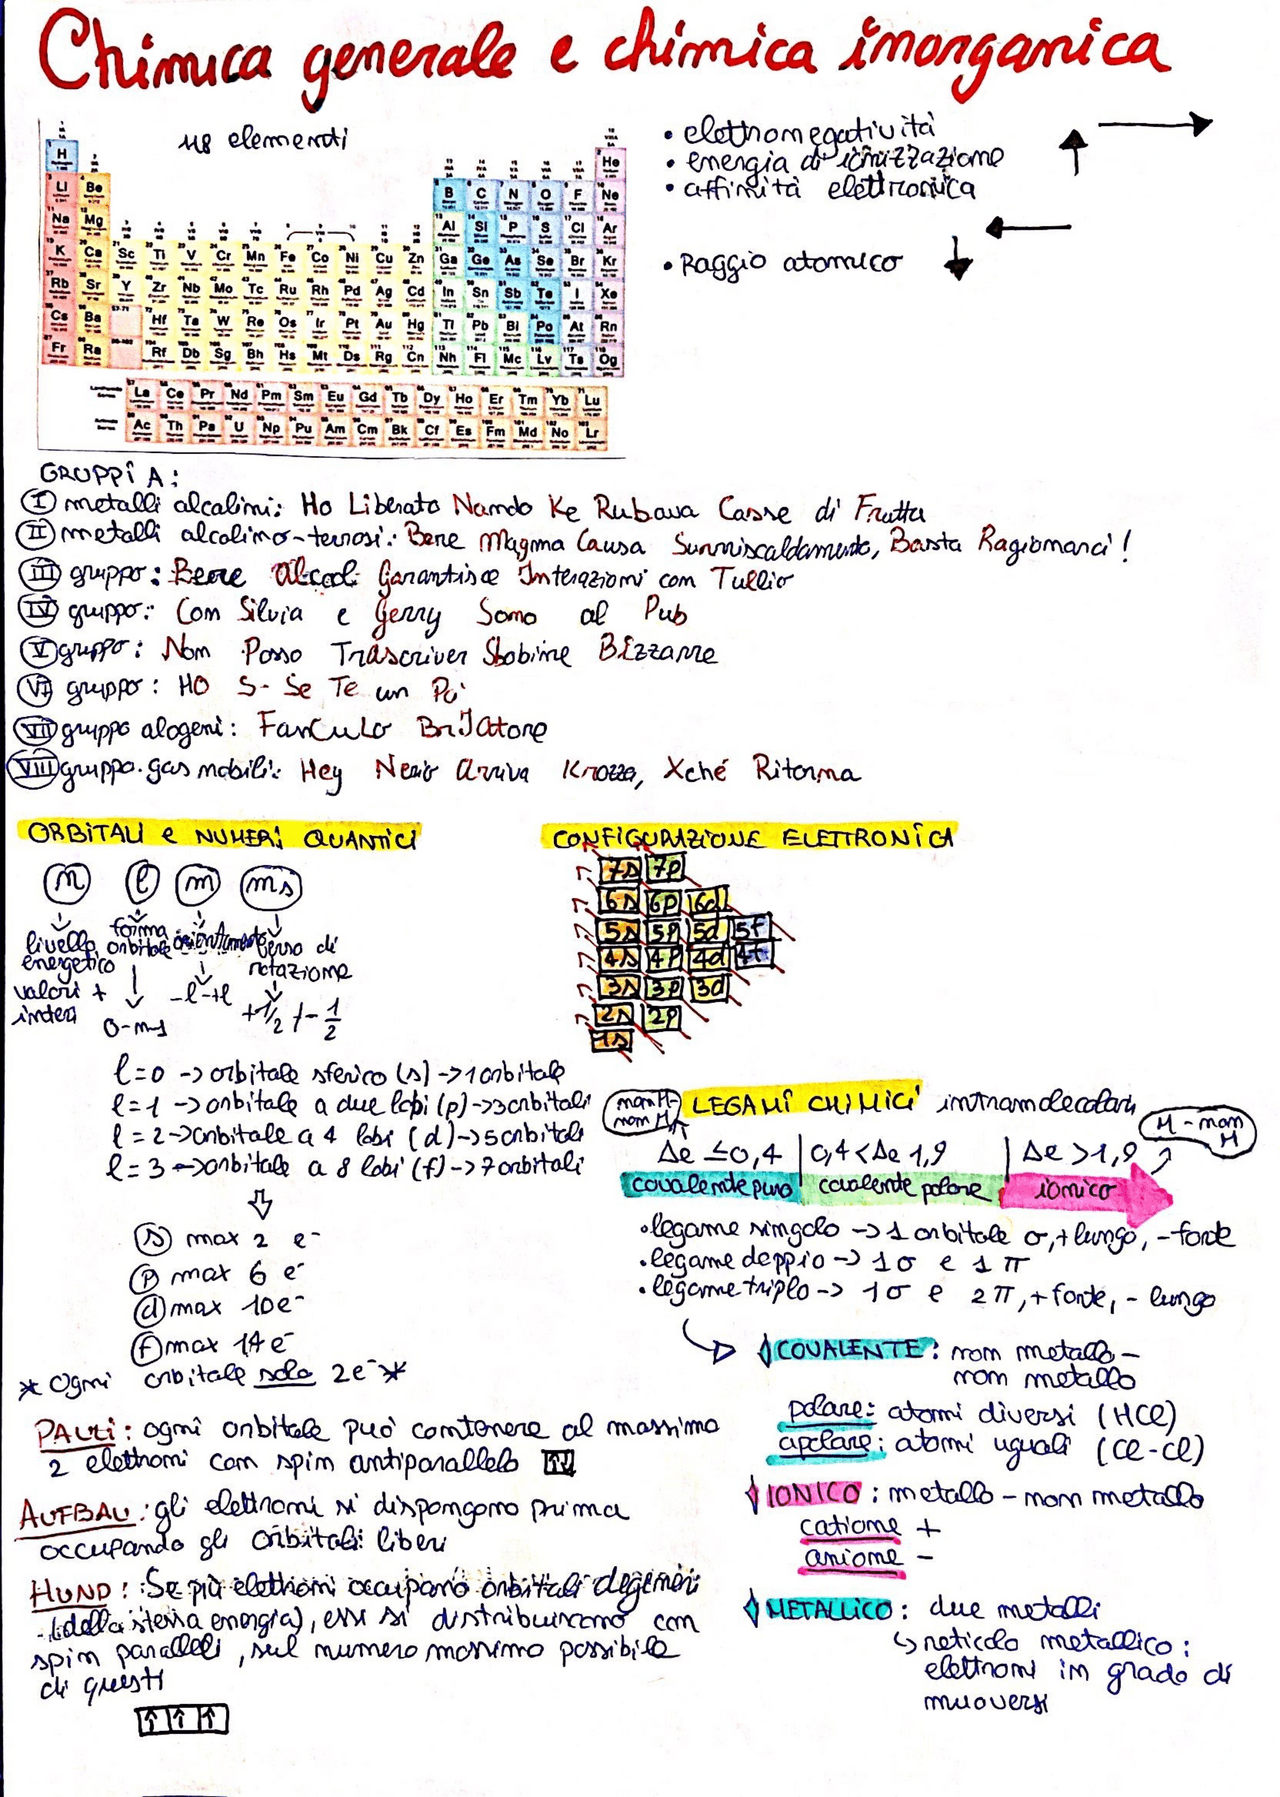 Chimica generale e chimica inorganica
118 elementi
• elettronegatività
• energia di ionizzazione
• affinità elettronica
• Raggio atomico
H He
Li Be B C N O F Ne
Na Mg Al Si P S Cl Ar
K Ca Sc Ti V Cr Mn Fe Co Ni Cu Zn Ga Ge As Se Br Kr
Rb Sr Y Zr Nb Mo Tc Ru Rh Pd Ag Cd In Sn Sb Te I Xe
Cs Ba 57-71 Hf Ta W Re Os Ir Pt Au Hg Tl Pb Bi Po At Rn
Fr Ra Rf Db Sg Bh Hs Mt Ds Rg Cn Nh Fl Mc Lv Ts Og
La Ce Pr Nd Pm Sm Eu Gd Tb Dy Ho Er Tm Yb Lu
Ac Th Pa U Np Pu Am Cm Bk Cf Es Fm Md No Lr
GRUPPI A:
I metalli alcalini: Ho Liberato Nando Ke Rubava Casse di Frutta
II metalli alcalino-terrosi: Bene Magma Causa Surriscaldamento, Basta Ragionarci!
III gruppo: Bere Alcol Garantisce Interazioni con Tullio
IV gruppo: Con Silvia e Gerry Sono al Pub
V gruppo: Non Posso Trascriver Sbobine BIzzarre
VI gruppo: HO S- Se Te un Po'
VII gruppo alogeni: FanCuLo BrIAtore
VIII gruppo gas nobili: Hey Nemo Arriva Krozza, Xché Ritorna
ORBITALI e NUMERI QUANTICI
n l m ms
livello energetico valori + interi
forma orbitale
0-n-1
orientamento
-l-+l
verso di rotazione
+1/2 / -1/2
l=0 -> orbitale sferico (s) -> 1 orbitale
l=1 -> orbitale a due lobi (p) -> 3 orbitali
l=2 -> orbitale a 4 lobi (d) -> 5 orbitali
l=3 -> orbitale a 8 lobi (f) -> 7 orbitali
s max 2 e-
p max 6 e-
d max 10 e-
f max 14 e-
* Ogni orbitale solo 2e- *
PAULI: ogni orbitale può contenere al massimo
2 elettroni con spin antiparallelo ↑↓
AUFBAU: gli elettroni si dispongono prima
occupando gli orbitali liberi
HUND: Se più elettroni occupano orbitali degeneri
(della stessa energia), essi si distribuiscono con
spin paralleli, sul numero massimo possibile
di questi
↑ ↑ ↑
CONFIGURAZIONE ELETTRONICA
7s 7p
6s 6p 6d
5s 5p 5d 5f
4s 4p 4d 4f
3s 3p 3d
2s 2p
1s
non M-
non M
LEGAMI CHIMICI intramolecolari
M-non
M
Δe ≤0,4 0,4<Δe 1,9 Δe >1,9
covalente puro covalente polare ionico
• legame singolo -> 1 orbitale σ, + lungo, - forte
• legame doppio -> 1σ e 1π
• legame triplo -> 1σ e 2π, + forte, - lungo
COVALENTE: non metallo -
non metallo
polare: atomi diversi (HCl)
apolare: atomi uguali (Cl-Cl)
IONICO: metallo - non metallo
catione +
anione -
METALLICO: due metalli
reticolo metallico:
elettroni in grado di
muoversi